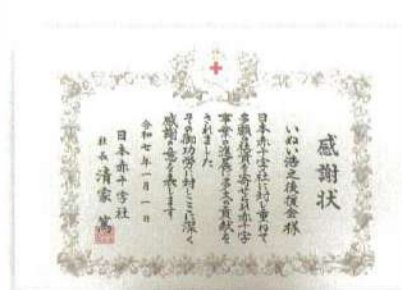 感謝状
いぬい浩之後援会様
日本赤十字社に対し重ねて
多額の社資を寄せられ赤十字
事業の進展に多大の貢献を
されました
その御功労に対しここに深く
感謝の意を表します
令和七年一月一日
日本赤十字社
社長 清家 篤